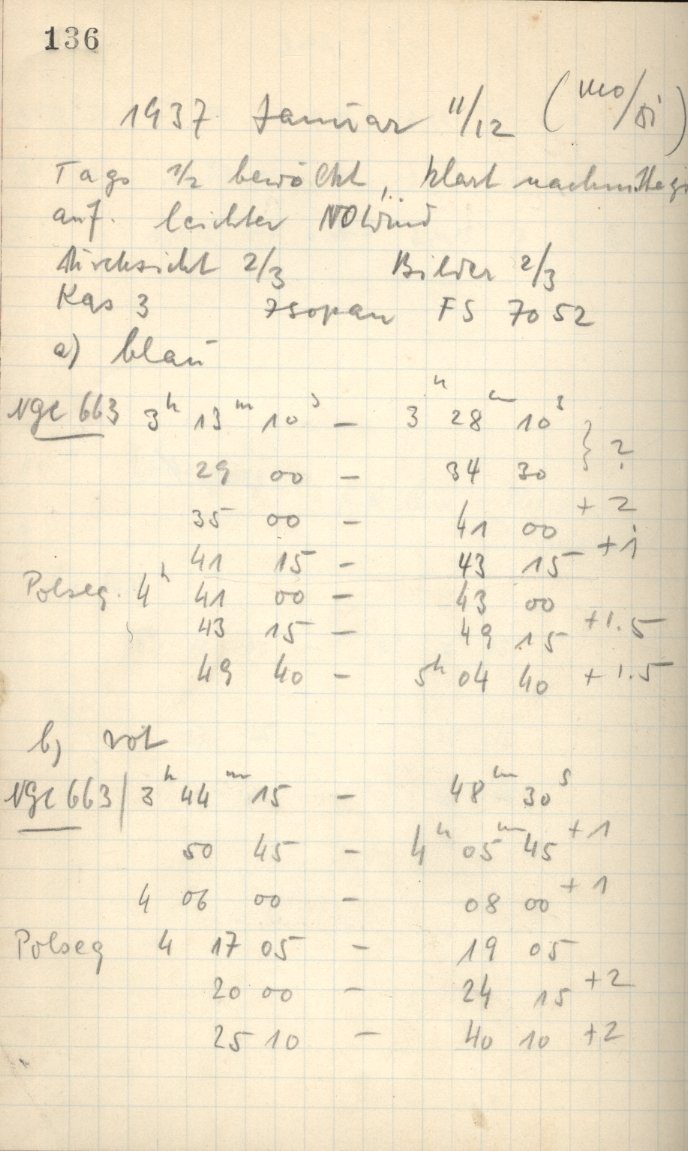 136
1937 Januar 11/12 (Mo/Di)
Tags 1/2 bewölkt, klart nachmittags
auf. leichter NOWind
Durchsicht 2/3 Bilder 2/3
Kas 3 Isopan FS 7052
a) blau
NGC 663 3h 13m 10s – 3h 28m 10s
29 00 – 34 30 } ?
35 00 – 41 00 +2
41 15 – 43 15 +1
Polseq. 4h 41 00 – 43 00
43 15 – 49 15 +1.5
49 40 – 5h 04 40 +1.5
b) rot
NGC 663 | 3h 44m 15 – 48m 30s
50 45 – 4h 05m 45 +1
4 06 00 – 08 00 +1
Polseq 4 17 05 – 19 05
20 00 – 24 15 +2
25 10 – 40 10 +2